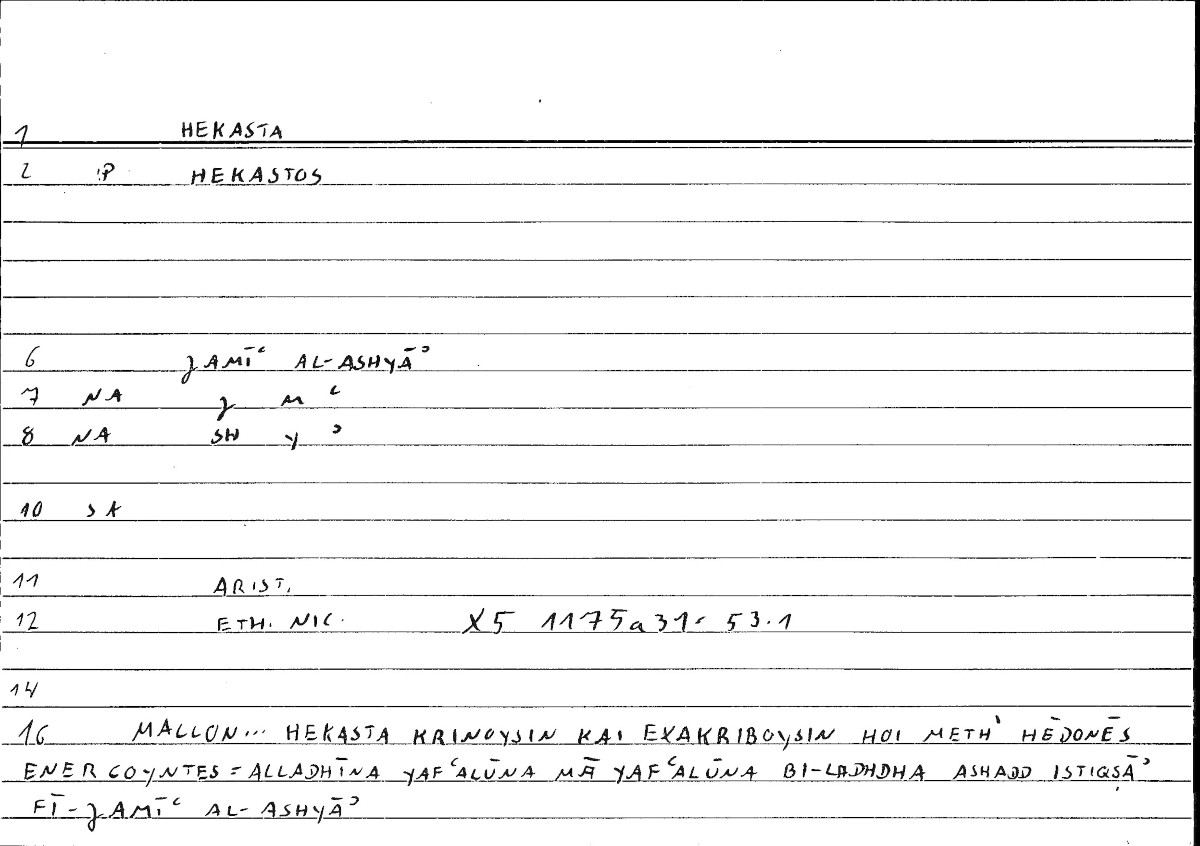 1 HEKASTA
2 P HEKASTOS
6 JAMĪʿ AL-ASHYĀʾ
7 NA J M ʿ
8 NA SH Y ʾ
10 SA
11 ARIST.
12 ETH. NIC. X5 1175a31 = 53.1
14
16 MALLON... HEKASTA KRINOYSIN KAI EXAKRIBOYSIN HOI METH' HĒDONĒS
ENERGOYNTES = ALLADHĪNA YAFʿALŪNA MĀ YAFʿALŪNA BI-LADHDHA ASHADD ISTIQṢĀʾ
FĪ-JAMĪʿ AL-ASHYĀʾ